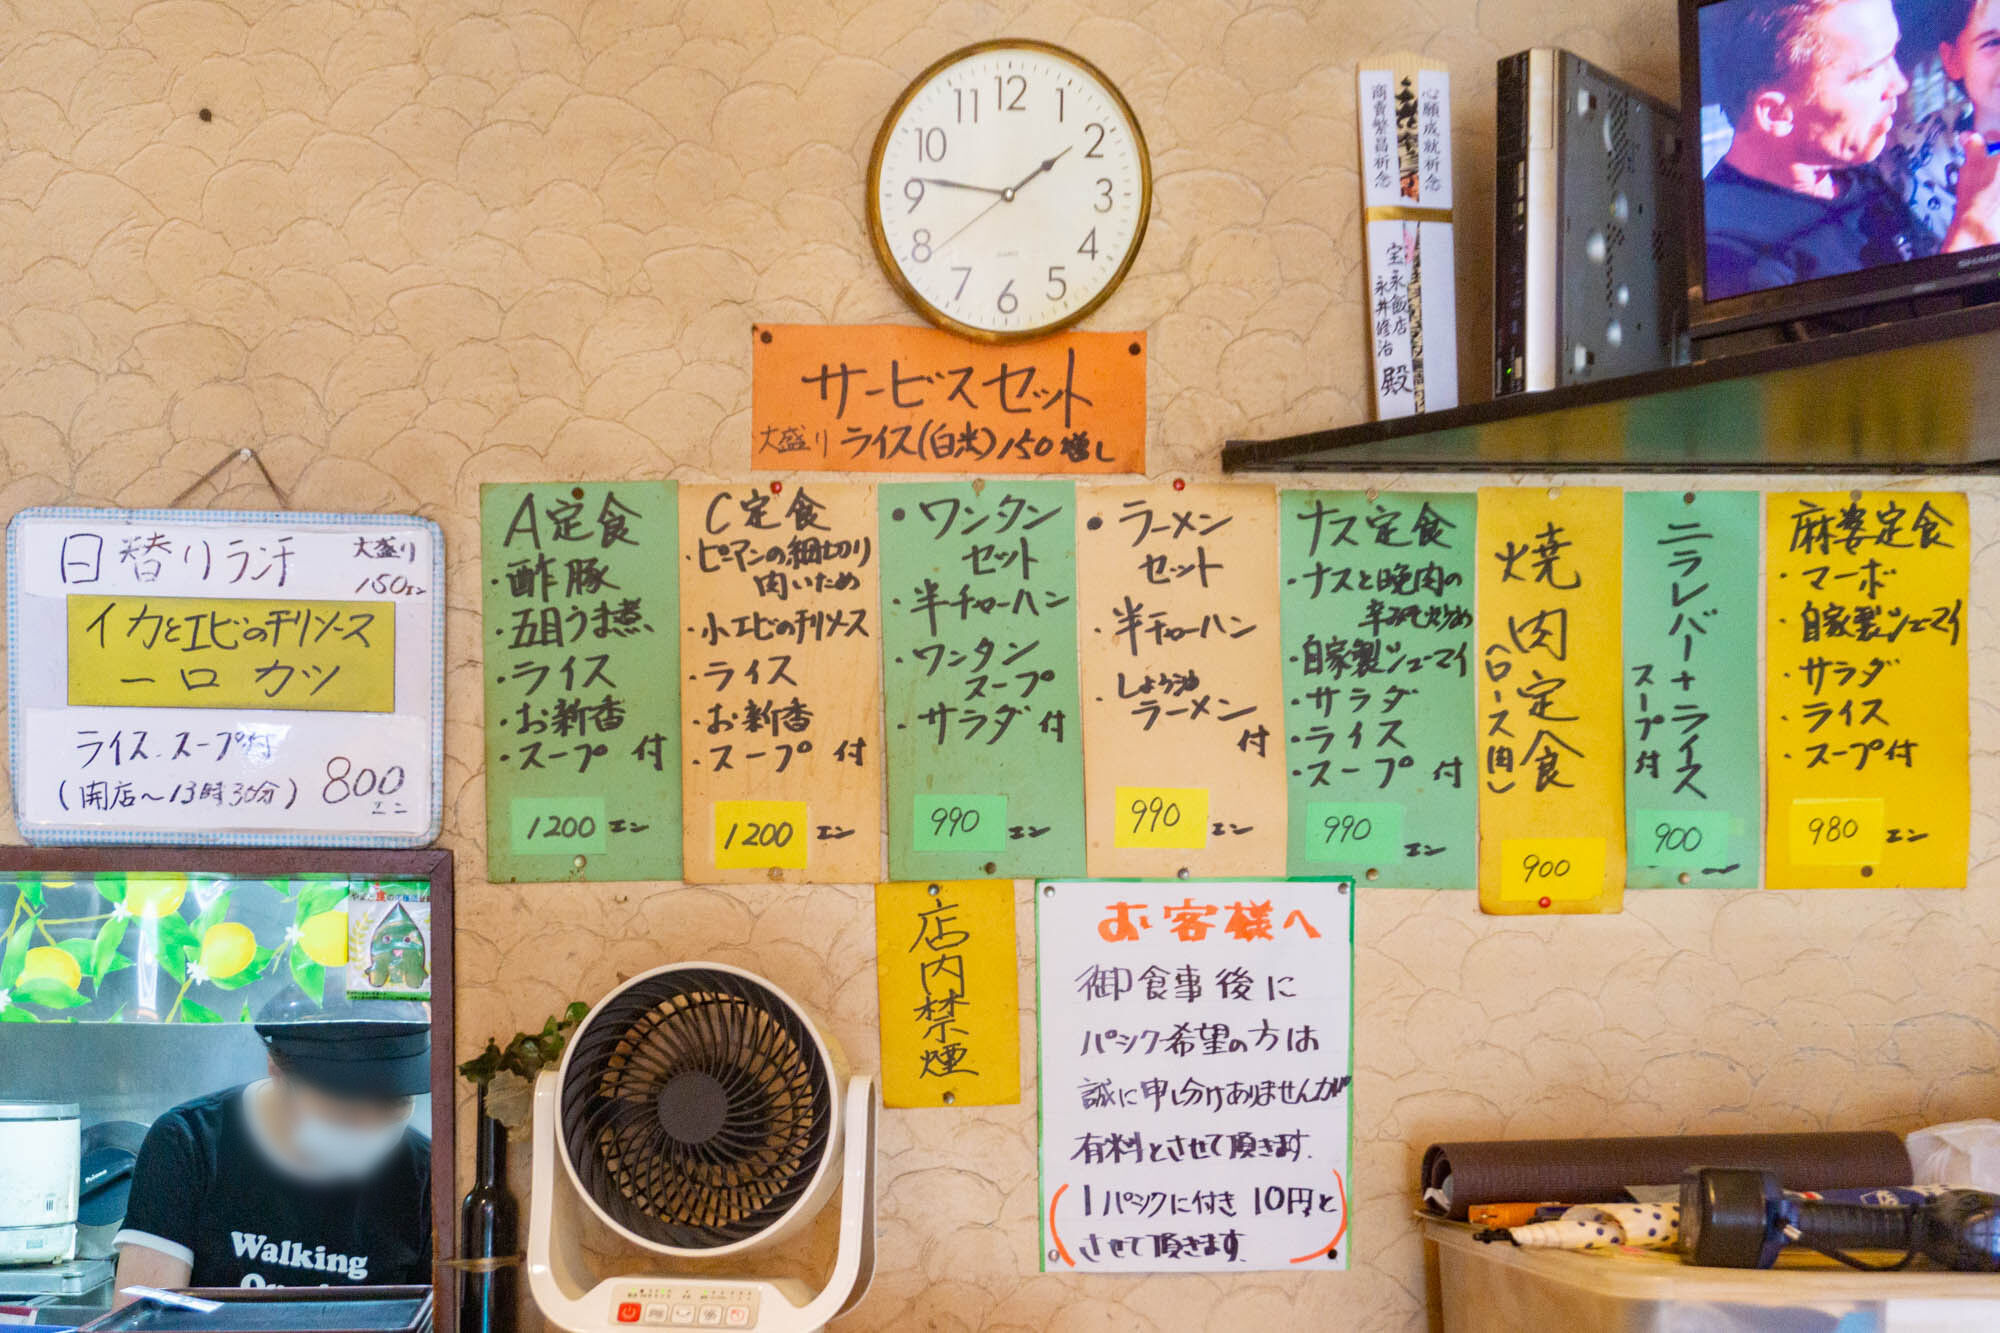 12
1
2
3
4
5
6
7
8
9
10
11
QUARTZ
心願成就祈念
商賣繁昌祈念
宝永飯店
永井修治 殿
SHARP
サービスセット
大盛り ライス(白米)150増し
日替りランチ
大盛り
150エン
イカとエビのチリソース
一口カツ
ライス、スープ付
(開店〜13時30分)
800
エン
A定食
・酢豚
・五目うま煮
・ライス
・お新香
・スープ 付
1200 エン
C定食
・ピーマンの細切り
肉いため
・小エビのチリソース
・ライス
・お新香
・スープ 付
1200 エン
・ワンタン
セット
・半チャーハン
・ワンタン
スープ
・サラダ付
990 エン
・ラーメン
セット
・半チャーハン
・しょう油
ラーメン
付
990 エン
ナス定食
・ナスと挽肉の
辛みそ炒め
・自家製シューマイ
・サラダ
・ライス
・スープ 付
990 エン
焼肉定食
(ロース肉)
900
ニラレバー+ライス
スープ付
900
麻婆定食
・マーボ
・自家製シューマイ
・サラダ
・ライス
・スープ付
980 エン
店内禁煙
お客様へ
御食事後に
パシク希望の方は
誠に申し分けありませんが
有料とさせて頂きます.
(1パシクに付き 10円と
させて頂きます)
Walking